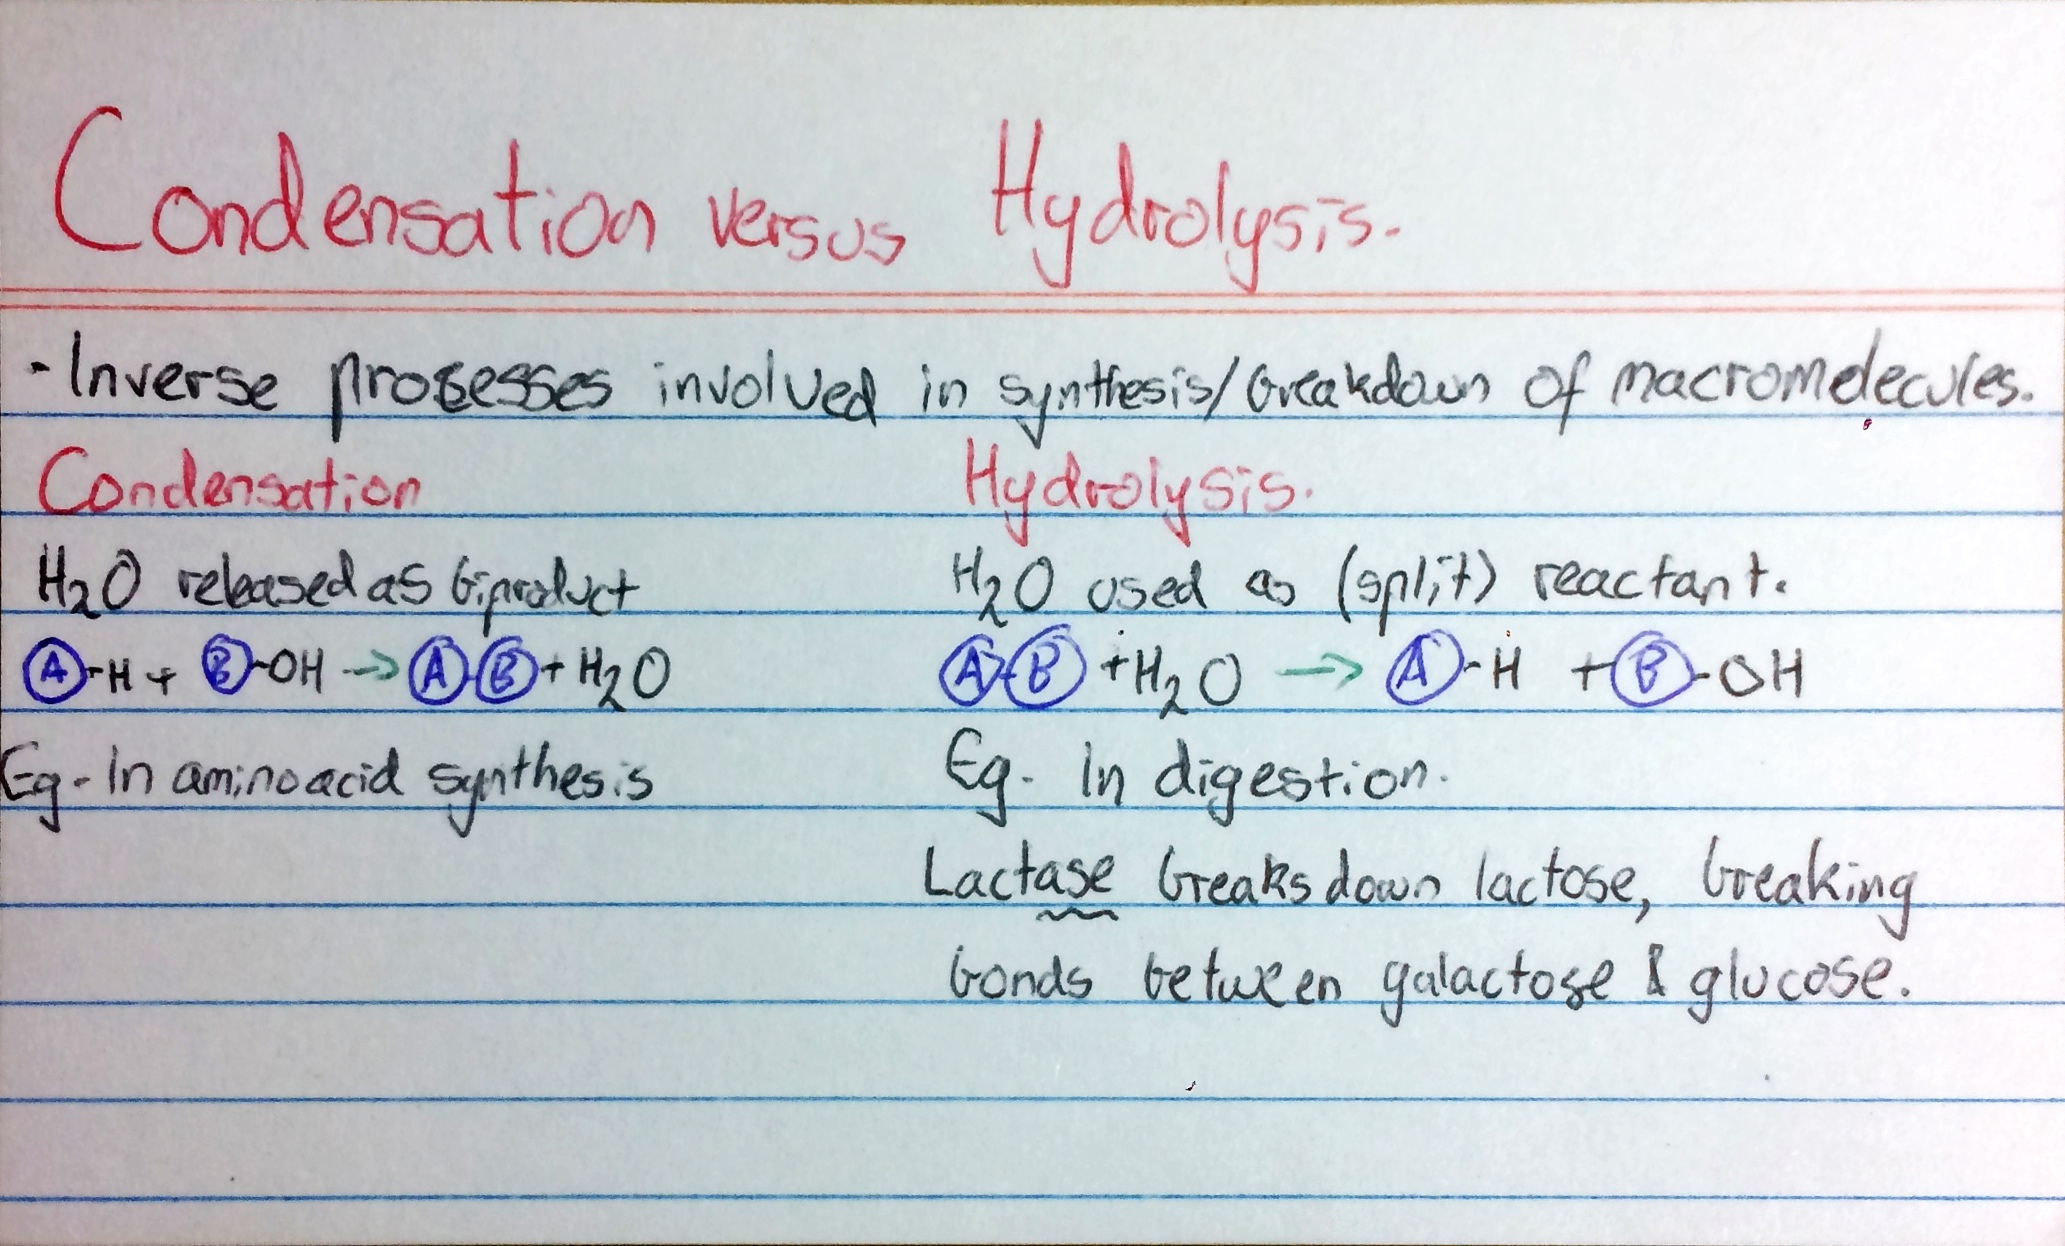 Condensation versus Hydrolysis.
-Inverse processes involved in synthesis/breakdown of macromolecules.
Condensation
H₂O released as biproduct
A-H + B-OH → A-B + H₂O
Eg- In aminoacid synthesis
Hydrolysis.
H₂O used as (split) reactant.
A-B + H₂O → A-H + B-OH
Eg. In digestion.
Lactase breaks down lactose, breaking
bonds between galactose & glucose.